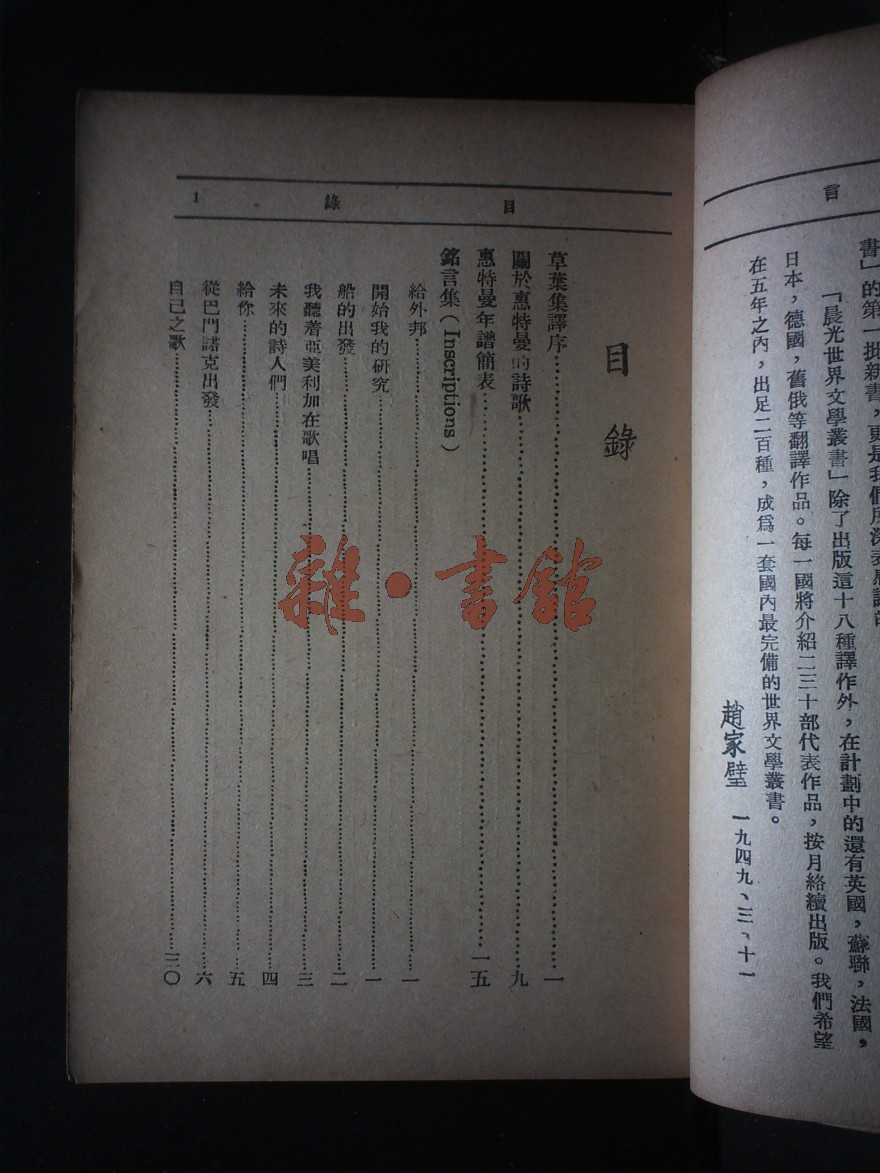 言
書」的第一批新書,更是我們所深表
「晨光世界文學叢書」除了出版這十八種譯作外,在計劃中的還有英國,蘇聯,法國,
日本,德國,舊俄等翻譯作品。每一國將介紹二三十部代表作品,按月絡續出版。我們希望
在五年之內,出足二百種,成爲一套國內最完備的世界文學叢書。
趙家璧 一九四九、三、十一
目 錄 1
目錄
草葉集譯序……一
關於惠特曼的詩歌……九
惠特曼年譜簡表……一五
銘言集(Inscriptions)
給外邦……一
開始我的研究……一
船的出發……二
我聽着亞美利加在歌唱……三
未來的詩人們……四
給你……五
從巴門諾克出發……六
自己之歌……三〇
雜·書館